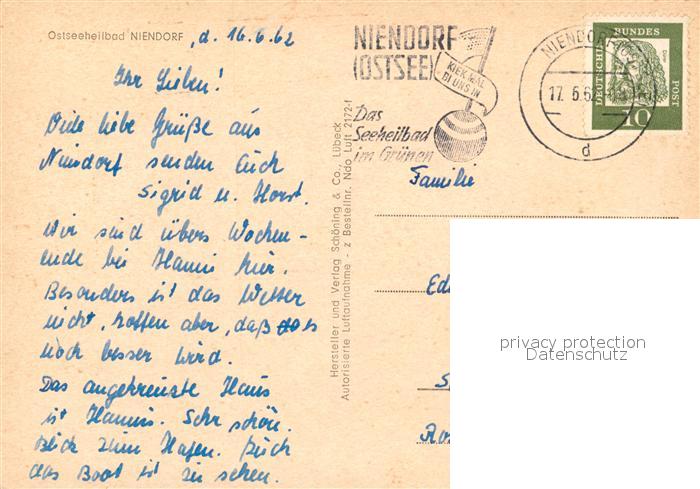 Ostseeheilbad NIENDORF, d. 16.6.62
Ihr Lieben!
Viele liebe Grüße aus
Niendorf senden Euch
Sigrid u. Horst.
Wir sind übers Wochen-
ende bei Hanni hier.
Besonders ist das Wetter
nicht, hoffen aber, daß es
noch besser wird.
Das angekreuzte Haus
ist Hannis. Sehr schön.
Blick zum Hafen. Auch
das Boot ist zu sehen.
Hersteller und Verlag Schöning & Co., Lübeck
Autorisierte Luftaufnahme - z Bestellnr. Ndo Luft 2172-f
NIENDORF
(OSTSEE)
KIEK MAL
BI UNS IN
Das
Seeheilbad
im Grünen
NIENDORF
17. 6.62
d
DEUTSCHE
BUNDES
POST
10
Familie
Ed
S
Ro
privacy protection
Datenschutz